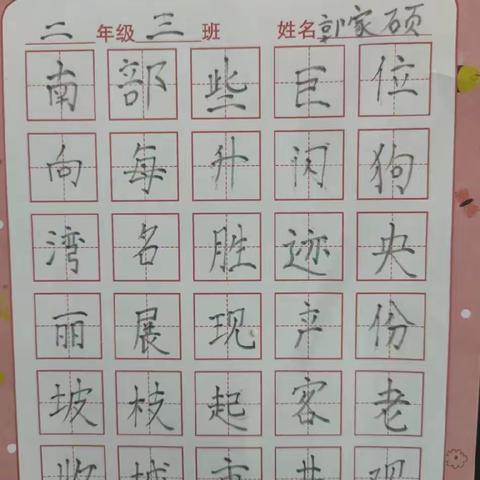 二年级三班 姓名郭家硕
南部些巨位
向每升闪狗
湾名胜迹央
丽展现声份
坡枝起客老
收城市井观